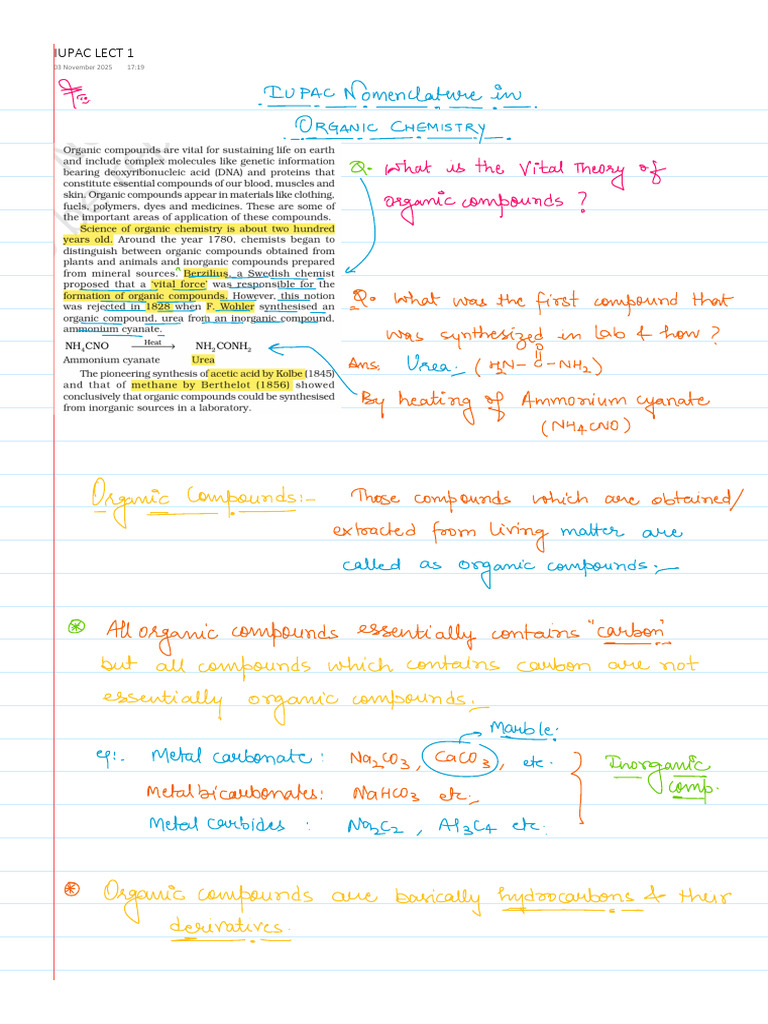 IUPAC LECT 1
03 November 2025 17:19
IUPAC Nomenclature in
ORGANIC CHEMISTRY
Organic compounds are vital for sustaining life on earth
and include complex molecules like genetic information
bearing deoxyribonucleic acid (DNA) and proteins that
constitute essential compounds of our blood, muscles and
skin. Organic compounds appear in materials like clothing,
fuels, polymers, dyes and medicines. These are some of
the important areas of application of these compounds.
Science of organic chemistry is about two hundred
years old. Around the year 1780, chemists began to
distinguish between organic compounds obtained from
plants and animals and inorganic compounds prepared
from mineral sources. Berzilius, a Swedish chemist
proposed that a 'vital force' was responsible for the
formation of organic compounds. However, this notion
was rejected in 1828 when F. Wohler synthesised an
organic compound, urea from an inorganic compound,
ammonium cyanate.
NH₄CNO Heat → NH₂CONH₂
Ammonium cyanate Urea
The pioneering synthesis of acetic acid by Kolbe (1845)
and that of methane by Berthelot (1856) showed
conclusively that organic compounds could be synthesised
from inorganic sources in a laboratory.
Q. What is the Vital Theory of
organic compounds ?
Q. What was the first compound that
was synthesized in Lab & how ?
O
Ans. Urea. (H₂N–C–NH₂)
By heating of Ammonium cyanate
(NH4CNO)
Organic Compounds:-
Those compounds which are obtained/
extracted from living matter are
called as organic compounds.
All organic compounds essentially contains "carbon"
but all compounds which contains carbon are not
essentially organic compounds.
Marble.
eg:. Metal carbonate : Na₂CO₃, CaCO₃, etc.
Metal bicarbonates: NaHCO₃ etc.
Metal carbides : Na₂C₂, Al₃C₄ etc.
Inorganic
comp.
Organic compounds are basically hydrocarbons & their
derivatives.